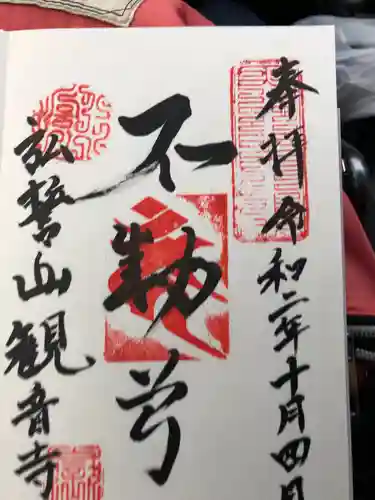 奉拝令和二年十月四日
不動尊
弘誓山観音寺